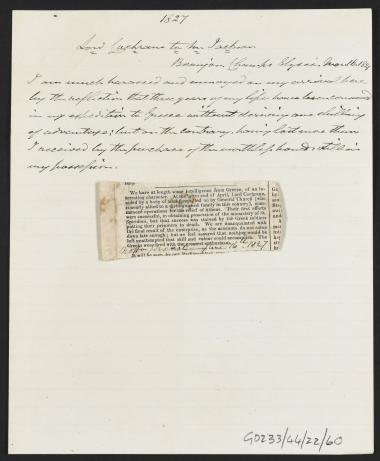 1827
Lord Cochrane to Mr. Jackson
Beaujon Champs Elysees
I am much harassed and annoyed on my arrival here
by the reflection that three years of my life have been consumed
in my expedition to Greece without deriving one shilling
of advantage; but on the contrary, having laid out more than
I received by the purchase of the worthless bonds still in
my possession.
We have at length some intelligence from Greece, of an in-
teresting character. At the latter end of April, Lord Cochrane,
aided by a body of troops landed by General Church (who,
allied to a distinguished family in this country), com-
menced operations for the relief of Athens. Their first efforts
were successful, in obtaining possession of the monastery of St.
Spiridion, but that success was stained by the Greek soldiers
putting their prisoners to death. We are unacquainted with
the final result of the enterprise, as the accounts do not come
down late enough; but we feel assured that nothing could be
left unattempted that skill and valour could accomplish. The
Greeks
June 16th 1827
G0233/44/22/60